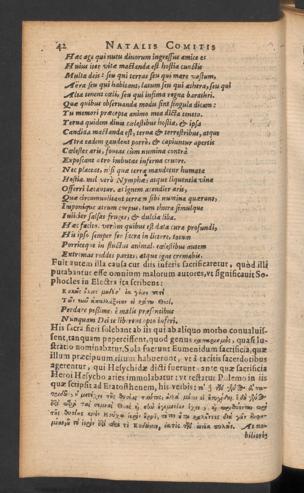 42 NATALIS COMITIS
Hæc age qui nutu diuorum ingressus amice es
Huius iter vitæ mactanda est hostia cunctis
Multa deis: seu qui terras seu qui mare vastum,
Aëra seu qui habitant, latum seu qui æthera, seu qui
Alta tenent cæli, seu qui infima regna barathri.
Quæ quibus obseruanda modo sint singula dicam:
Tu memori præcepta animo mea dicta teneto.
Terna quidem diuis cælestibus hostia, & ipsa
Candida mactanda est, terna & terrestribus, atque
Atra eadem gaudent porrò, & capiuntur apertis
Cælestes aris, foueas cùm numina contrà
Exposcant atro imbutas inferna cruore.
Nec placeat, nisi quæ terræ mandetur humata
Hostia. mel verò Nymphæ, atque liquentia vina
Offerri lætantur. at ignem accendier aris,
Quæ circumuolitant terram sibi numina quærunt,
Imponique atrum corpus, tum thura simulque
Iniicier salsas fruges, & dulcia liba.
Hæc facito. verùm quibus est data cura profundi,
His ipso semper fer sacra in littore, totum
Porriceque in fluctus animal. cælestibus autem
Extremas reddes partes, atque igne cremabis.
Fuit autem illa causa cur diis inferis sacrificaretur, quòd illi
putabantur esse omnium malorum autores, vt significauit So-
phocles in Electra ita scribens:
Perdare pessime. è malis præsentibus
Nunquam Dei te liberent ipsi inferi.
His sacra fieri solebant ab iis qui ab aliquo morbo conualuis-
sent, tanquam pepercissent, quod genus quasi lu-
stratio nominabatur. Sola fuerunt Eumenidum sacrificia, quæ
illum præcipuum ritum habuerunt, vt à tacitis sacerdotibus
agerentur, qui Hesychidæ dicti fuerunt: ante quæ sacrificia
Heroi Hesycho aries immolabatur: vt testatur Polemo in iis
quæ scripsit ad Eratosthenem, his verbis:
At no-
bilioris